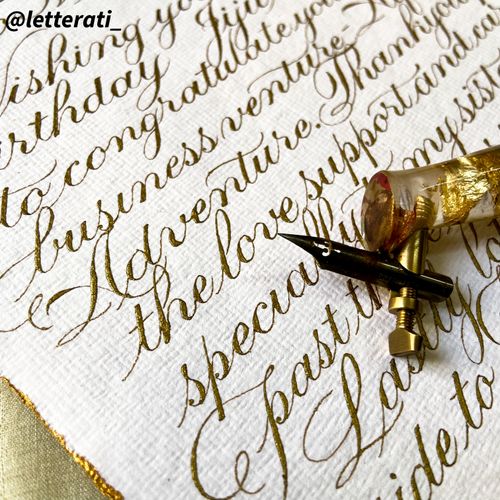 @letterati_
ishing yo
irthday Jiju
to congratulate you
business venture-
Adventure. Thankyou
the love support and ca
specially my sist
past th
Last
ide to